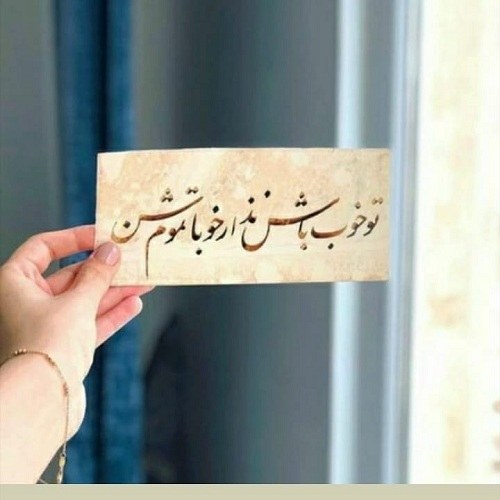 تو خوب باش نذار خوبا تموم شن